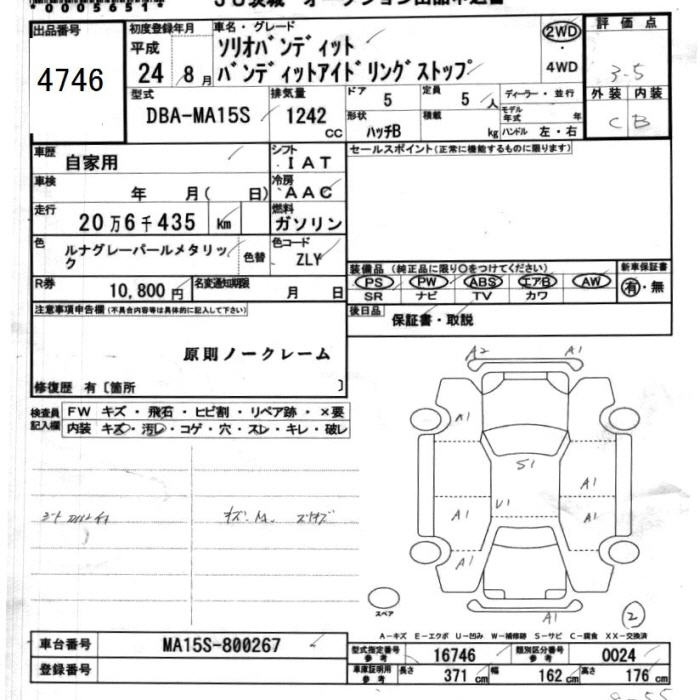 *00056511*
JU茨城 オークション出品申込書
出品番号 初度登録年月 車名・グレード 評価点
4746 平成 24年 8月 ソリオバンディット 2WD
バンディットアイドリングストップ 4WD 3.5
型式 排気量 ドア 5 定員 5人 ディーラー・並行 外装 内装
DBA-MA15S 1242cc 形状 ハッチB 積載 kg モデル年式 年 ハンドル 左・右 C B
車歴 自家用 シフト IAT セールスポイント(正常に機能するものに限ります)
車検 年 月( 日) 冷房 AAC
走行 20万6千435 km 燃料 ガソリン
色 ルナグレーパールメタリック 色替 色コード ZLY
装備品(純正品に限り○をつけてください) 新車保証書
PS PW ABS エアB AW 有・無
SR ナビ TV カワ
R券 10,800円 名変通知期限 月 日
後日品 保証書・取説
注意事項申告欄(不具合内容等は具体的に記入して下さい)
原則ノークレーム
修復歴 有〔箇所 〕
検査員記入欄 FW キズ・飛石・ヒビ割・リペア跡・×要
内装 キズ・汚レ・コゲ・穴・スレ・キレ・破レ
A2 A1
A1
S1
A1
A1 U1 A1
A1
A1
スペア
2
A-キズ E-エクボ U-凹み W-補修跡 S-サビ C-腐食 XX-交換済
車台番号 MA15S-800267
登録番号
型式指定番号 参考 16746 類別区分番号 参考 0024
車庫証明用 参考 長さ 371cm 幅 162cm 高さ 176cm